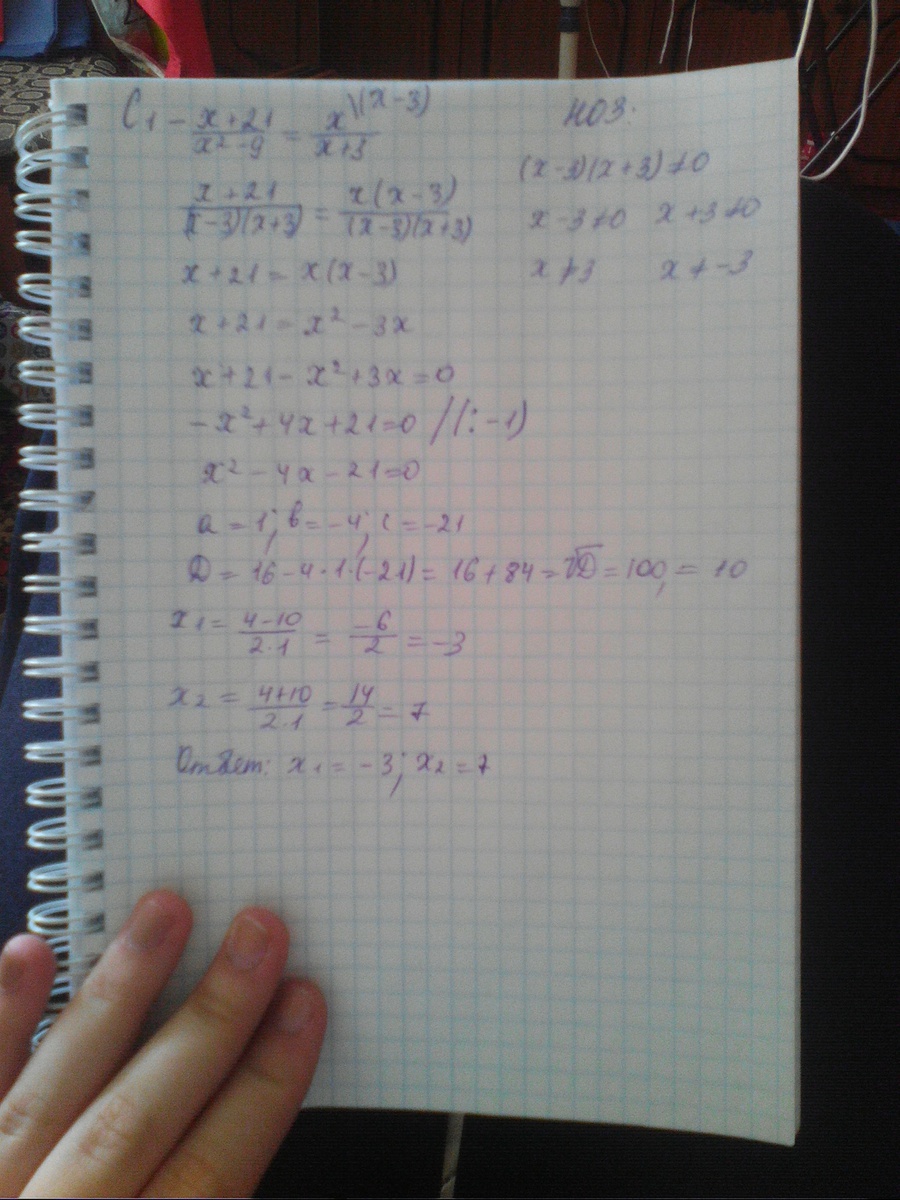 C1 - x+21/x²-9 = x/x+3 \(x-3)
НОЗ:
(x-3)(x+3)≠0
x+21/(x-3)(x+3) = x(x-3)/(x-3)(x+3)
x-3≠0 x+3≠0
x+21 = x(x-3)
x≠3 x≠-3
x+21 = x²-3x
x+21-x²+3x=0
-x²+4x+21=0 /(:-1)
x²-4x-21=0
a=1; b=-4; c=-21
D = 16-4·1·(-21) = 16+84 = √D = 100, = 10
x1 = 4-10/2·1 = -6/2 = -3
x2 = 4+10/2·1 = 14/2 = 7
Ответ: x1 = -3; x2 = 7